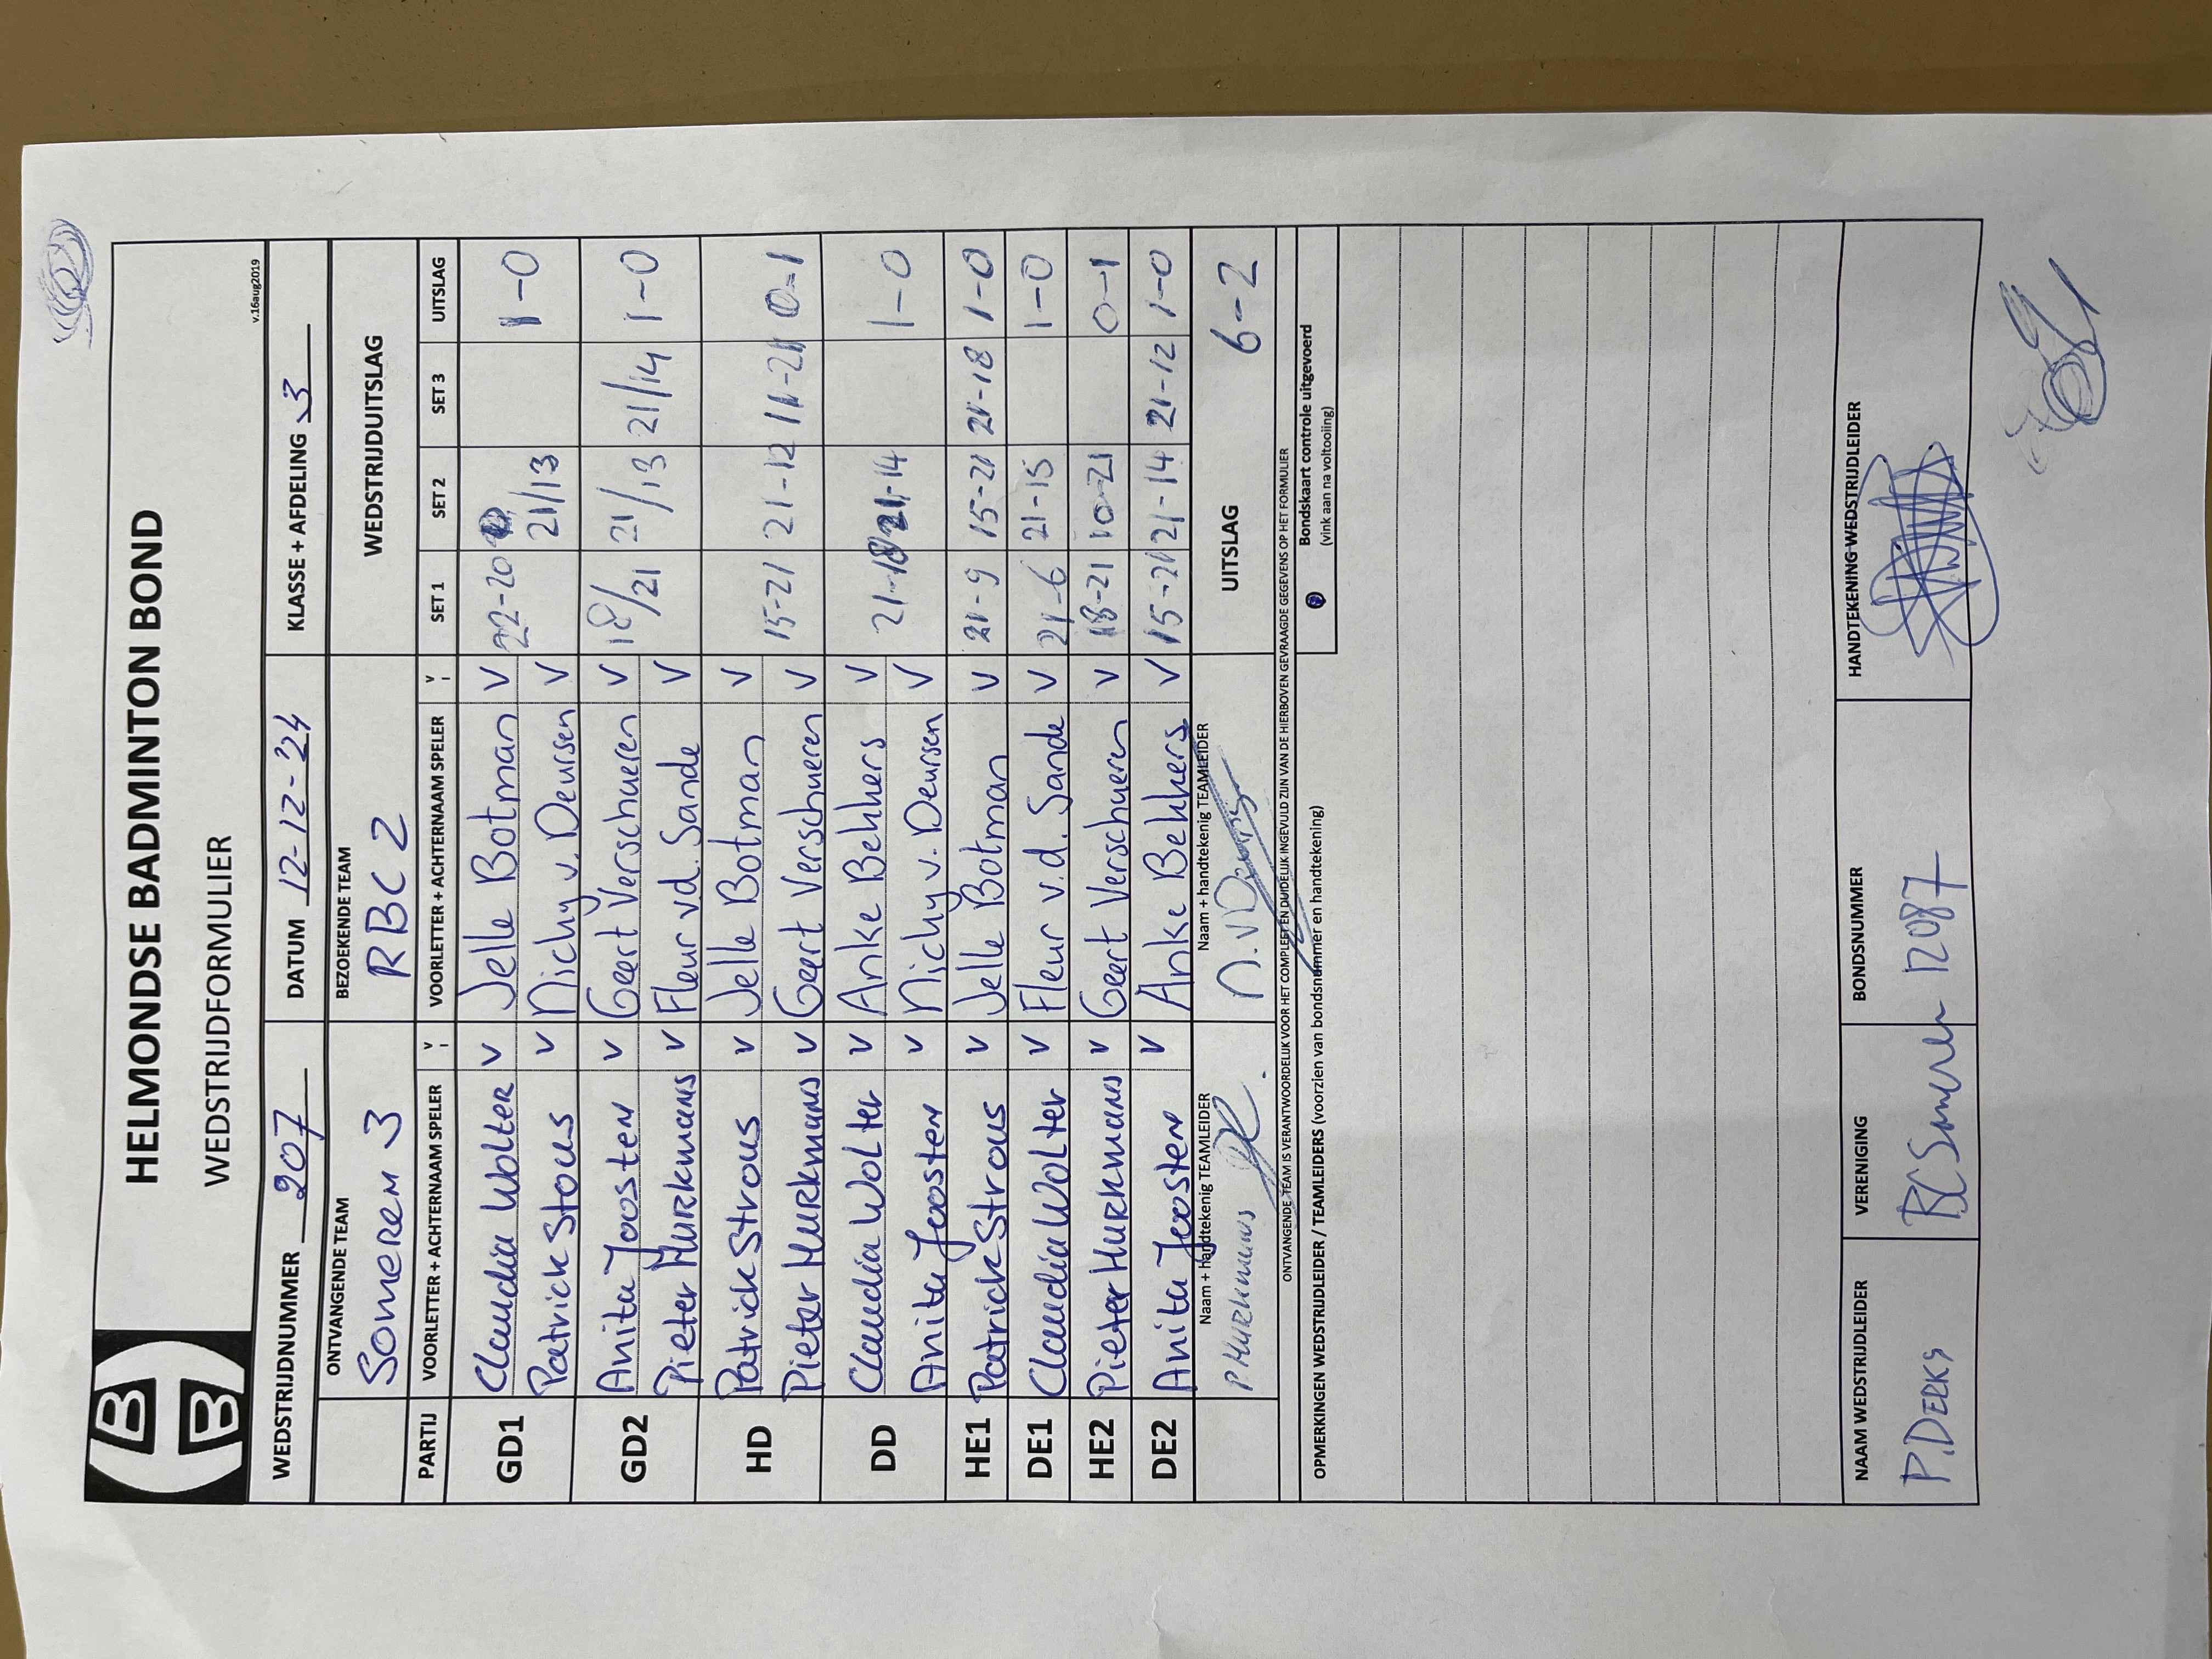 HELMONDSE BADMINTON BOND
WEDSTRIJDFORMULIER
v.16aug2019
WEDSTRIJDNUMMER 207 DATUM 12-12-'24 KLASSE + AFDELING 3
ONTVANGENDE TEAM BEZOEKENDE TEAM WEDSTRIJDUITSLAG
Someren 3 RBC 2
PARTIJ VOORLETTER + ACHTERNAAM SPELER V VOORLETTER + ACHTERNAAM SPELER V SET 1 SET 2 SET 3 UITSLAG
GD1 Claudia Wolter V Jelle Botman V 22-20 21/13 1-0
Patrick Stous V Nicky v. Deursen V
GD2 Anita Joosten V Geert Verschueren V 18/21 21/13 21/14 1-0
Pieter Hurkmans V Fleur vd. Sande V
HD Patrick Strous V Jelle Botman V
Pieter Hurkmans V Geert Verschueren V 15-21 21-12 11-21 0-1
DD Claudia Wolter V Anke Bekkers V 21-18 21-14 1-0
Anita Joosten V Nicky v. Deursen V
HE1 Patrick Strous V Jelle Botman V 21-9 15-21 21-18 1-0
DE1 Claudia Wolter V Fleur v.d. Sande V 21-6 21-15 1-0
HE2 Pieter Hurkmans V Geert Verschueren V 18-21 10-21 0-1
DE2 Anita Joosten V Anke Bekkers V 15-21 21-14 21-12 1-0
Naam + handtekenig TEAMLEIDER Naam + handtekenig TEAMLEIDER UITSLAG 6-2
P Hurkmans
ONTVANGENDE TEAM IS VERANTWOORDELIJK VOOR HET COMPLEET EN DUIDELIJK INGEVULD ZIJN VAN DE HIERBOVEN GEVRAAGDE GEGEVENS OP HET FORMULIER
OPMERKINGEN WEDSTRIJDLEIDER / TEAMLEIDERS (voorzien van bondsnummer en handtekening)
Bondskaart controle uitgevoerd
(vink aan na voltooling)
NAAM WEDSTRIJDLEIDER VERENIGING BONDSNUMMER HANDTEKENING WEDSTRIJDLEIDER
P. Deeks BC Someren 12087